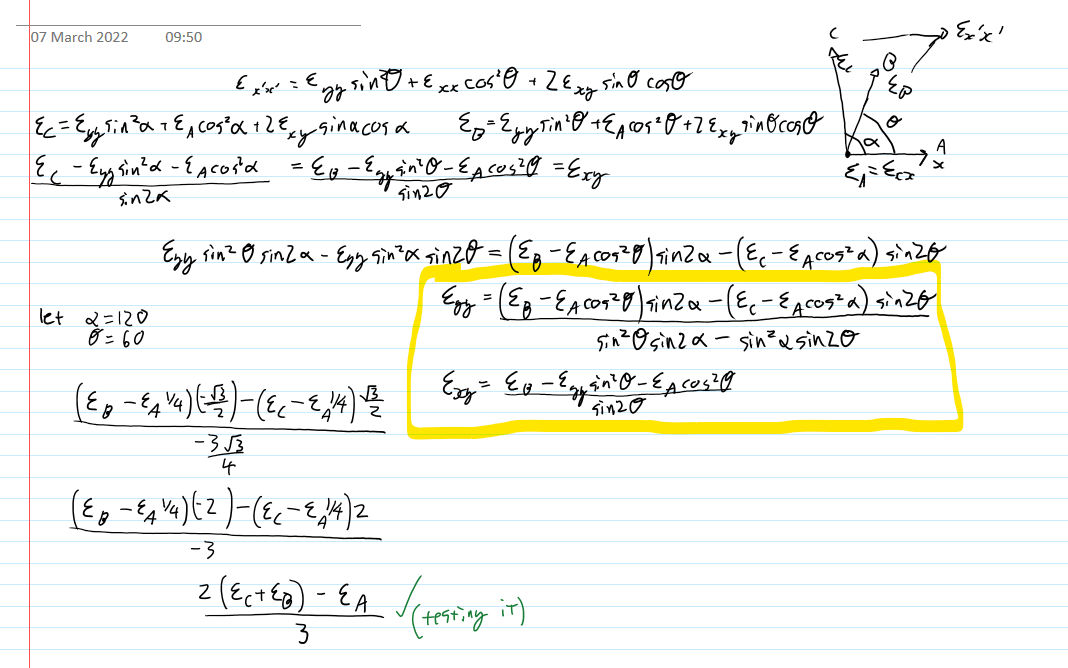 07 March 2022 09:50
ε_x'x' = ε_yy sin²θ + ε_xx cos²θ + 2ε_xy sinθ cosθ
ε_C = ε_yy sin²α + ε_A cos²α + 2ε_xy sinα cosα ε_B = ε_yy sin²θ + ε_A cos²θ + 2ε_xy sinθ cosθ
(ε_C - ε_yy sin²α - ε_A cos²α) / sin2α = (ε_B - ε_yy sin²θ - ε_A cos²θ) / sin2θ = ε_xy
C ε_x'x'
ε_C B
ε_B
θ
α A
x
ε_A = ε_xx
ε_yy sin²θ sin2α - ε_yy sin²α sin2θ = (ε_B - ε_A cos²θ) sin2α - (ε_C - ε_A cos²α) sin2θ
ε_yy = ((ε_B - ε_A cos²θ) sin2α - (ε_C - ε_A cos²α) sin2θ) / (sin²θ sin2α - sin²α sin2θ)
ε_xy = (ε_B - ε_yy sin²θ - ε_A cos²θ) / sin2θ
let α = 120
θ = 60
((ε_B - ε_A 1/4)(-√3/2) - (ε_C - ε_A 1/4) √3/2) / (-3√3/4)
((ε_B - ε_A 1/4)(-2) - (ε_C - ε_A 1/4) 2) / -3
(2(ε_C + ε_B) - ε_A) / 3 ✓ (testing it)